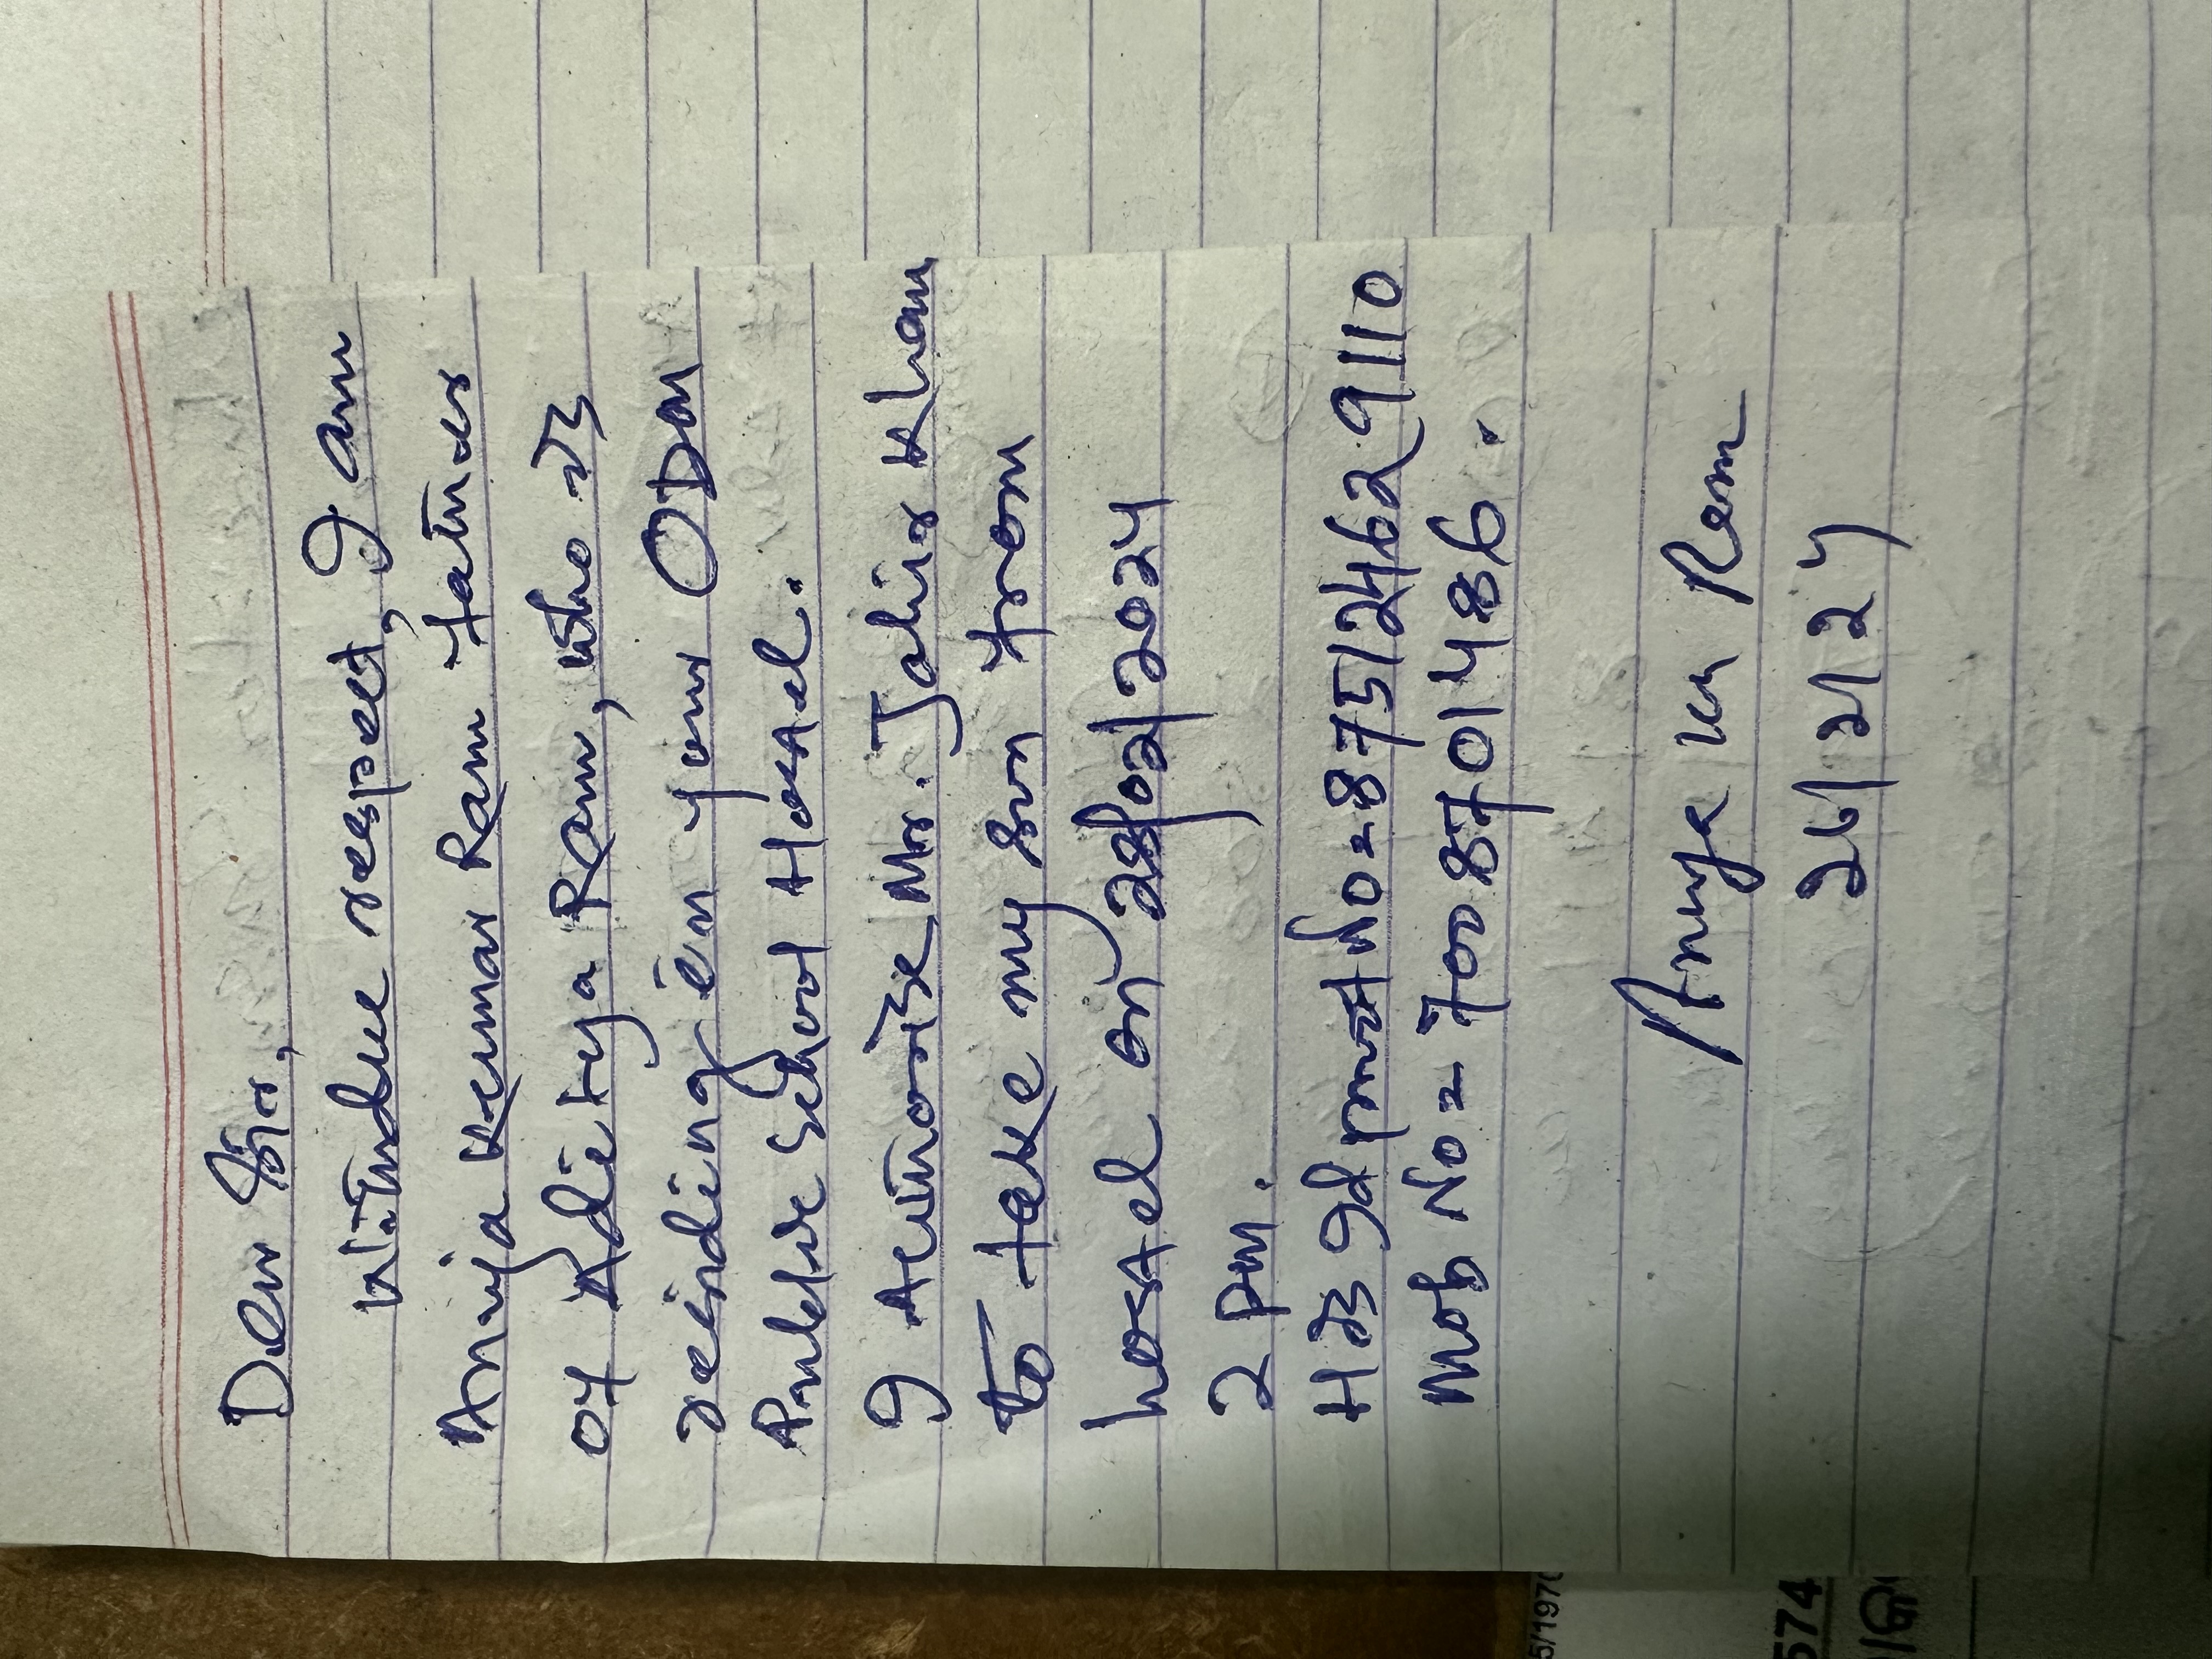 Dear Sir,
With due respect, I am
Anuja Kumar Ram father
of Aditya Ram, who is
reciding in your ODM
Public School Hostel.
I Authorise Mr. Jahir Khan
to take my son from
hostel on 28/02/2024
2 pm.
His Id proof No = 875124629110
Mob No = 7008701486.
Anuja Kr Ram
26/2/24
5/197
574